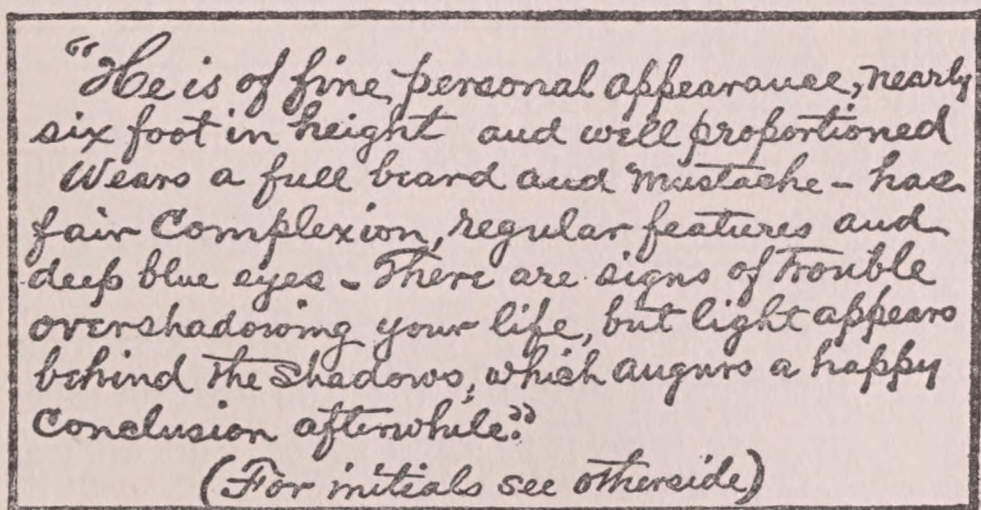 “He is of fine personal appearance, nearly
six foot in height and well proportioned
Wears a full beard and mustache - has
fair Complexion, regular features and
deep blue eyes - There are signs of trouble
overshadowing your life, but light appears
behind the shadows, which augurs a happy
Conclusion afterwhile.”
(For initials see otherside)